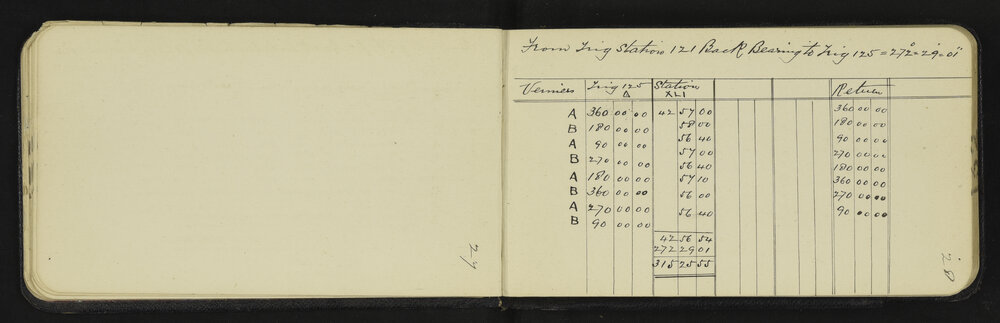 27
From Trig Station 121 Back Bearing to Trig 125 = 272°-29'-01"
Verniers Trig 125 Station Return
△ XLI
A 360 00 00 42 57 00 360 00 00
B 180 00 00 58 00 180 00 00
A 90 00 00 56 40 90 00 00
B 270 00 00 57 00 270 00 00
A 180 00 00 56 40 180 00 00
B 360 00 00 57 10 360 00 00
A 270 00 00 56 00 270 00 00
B 90 00 00 56 40 90 00 00
42 56 54
272 29 01
315 25 55
28